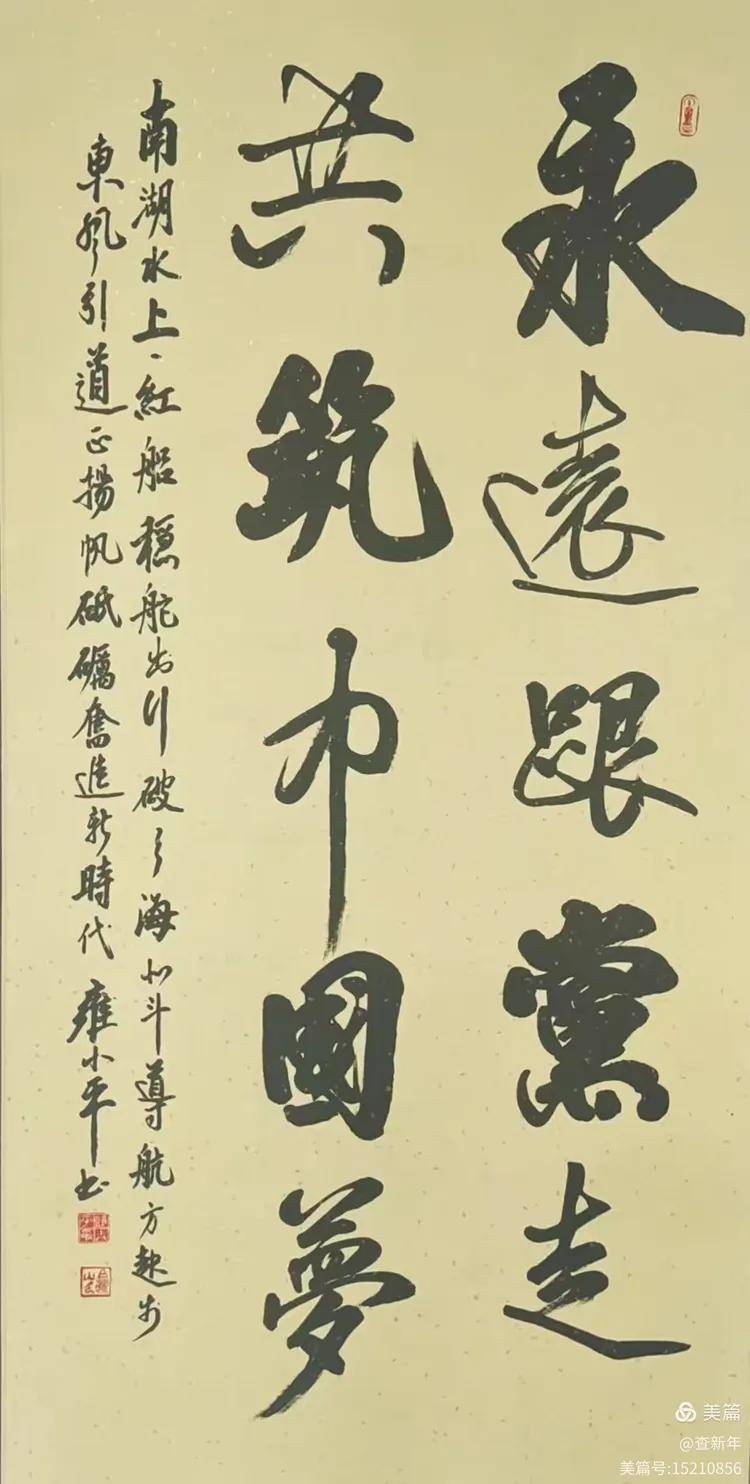 永遠跟黨走
共筑中國夢
南湖水上、紅船穩舵出行破了海北斗導航方
東風引道正揚帆砥礪奮進新時代 雍小平书
美篇
@查新年
美篇号:15210856